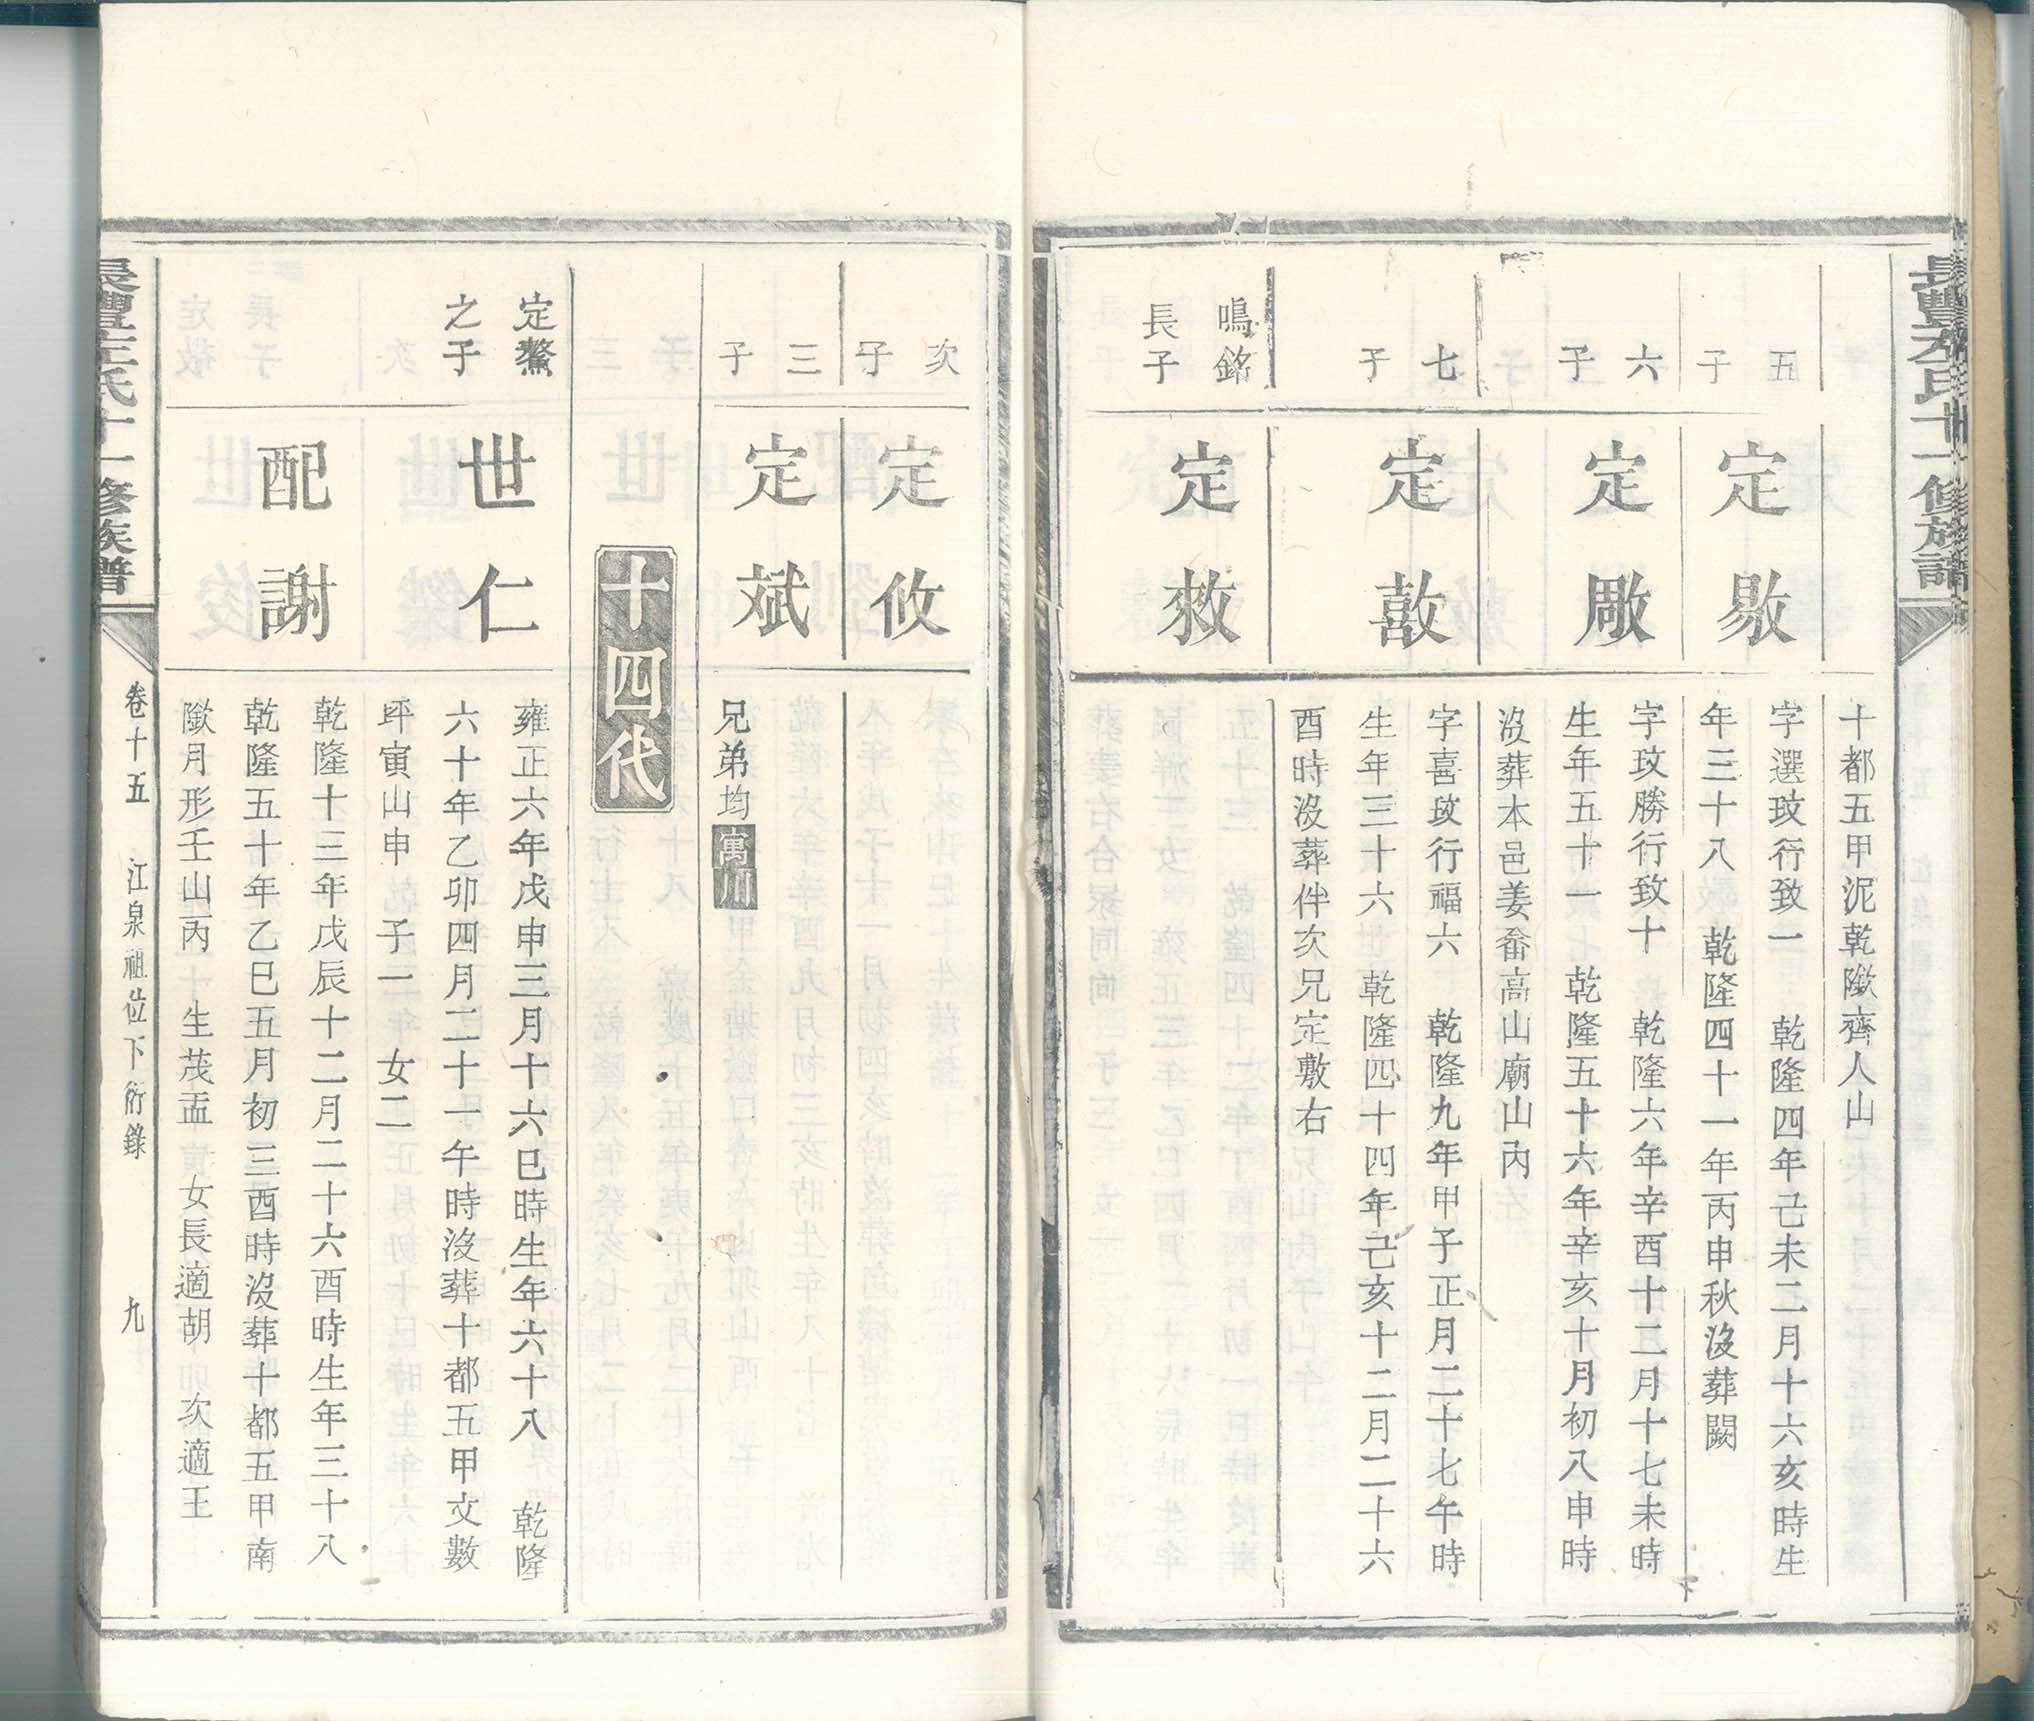 十都五甲泥乾𡑞齊人山
五子
定敭
字選玫行致一 乾隆四年己未二月十六亥時生
年三十八 乾隆四十一年丙申秋沒葬闕
六子
定敐
字玟勝行致十 乾隆六年辛酉十二月十七未時
生年五十一 乾隆五十六年辛亥十月初八申時
沒葬本邑姜畬高山廟山內
七子
定敼
字喜玫行福六 乾隆九年甲子正月二十七午時
生年三十六 乾隆四十四年己亥十二月二十六
酉時沒葬伴次兄定敷右
鳴銘
長子
定敕
次子
定攸
三子
定斌
兄弟均寓川
十四代
定鰲
之子
世仁
雍正六年戊申三月十六巳時生年六十八 乾隆
六十年乙卯四月二十一午時沒葬十都五甲文數
坪寅山申 子一 女二
配謝
乾隆十三年戊辰十二月二十六酉時生年三十八
乾隆五十年乙巳五月初三酉時沒葬十都五甲南
月形壬山丙 生茂盂 女長適胡 次適王
氏十一修族譜
卷十五 江泉祖位下衍錄 九